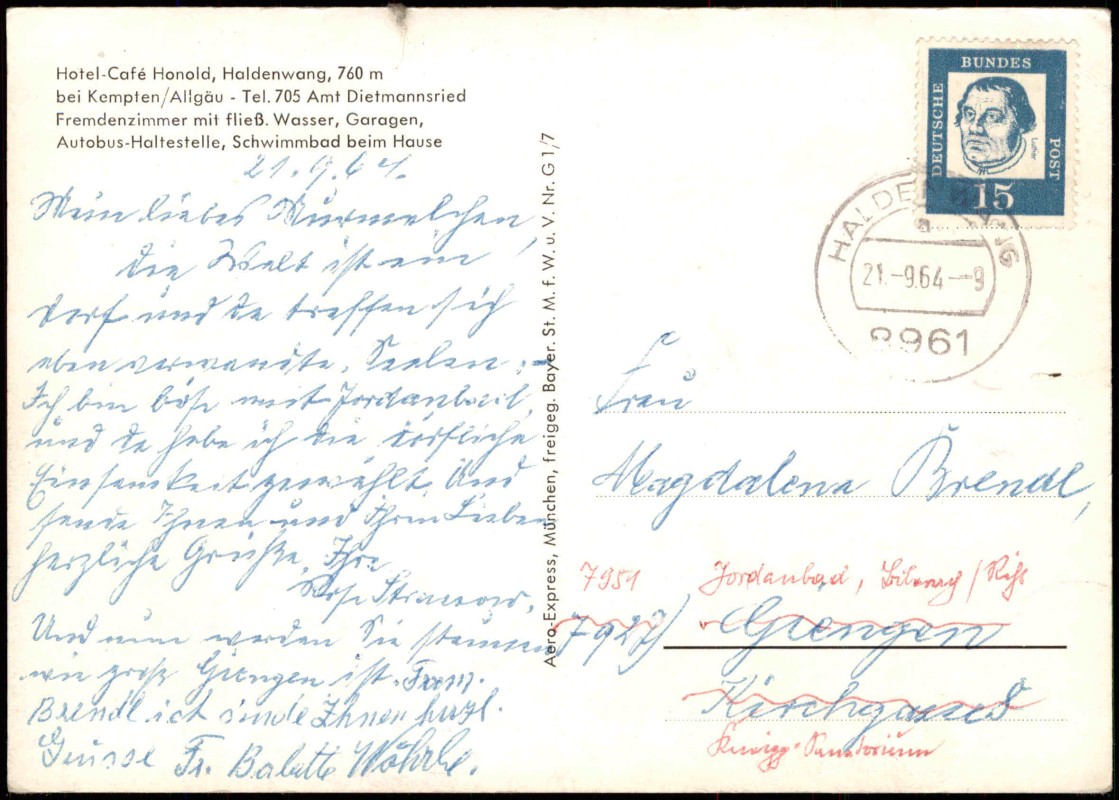 Hotel-Café Honold, Haldenwang, 760 m
bei Kempten/Allgäu - Tel. 705 Amt Dietmannsried
Fremdenzimmer mit fließ. Wasser, Garagen,
Autobus-Haltestelle, Schwimmbad beim Hause
21.9.64.
Mein liebes Murmelchen,
die Welt ist ein
Dorf und da treffen sich
eben verwandte Seelen.
Ich bin böse mit Jordanbad
und da habe ich die dörfliche
Einsamkeit gewählt. Und
sende Ihnen und Ihren Lieben
herzliche Grüße, Ihre
Und nun werden Sie staunen
wie groß Giengen ist. Fram.
Brendl ich sinde Ihnen herzl.
Grüsse Fr. Babette Wöhrle.
Aero-Express, München, freigeg. Bayer. St. M. f. W. u. V. Nr. G 1/7
DEUTSCHE BUNDES POST
Luther
15
HALDENWANG
a
21.-9.64-9
8961
Frau
Magdalena Brendl,
7951 Jordanbad, Biberach/Riß
7927) Giengen
Kirchgasse 8
Kneipp-Sanatorium